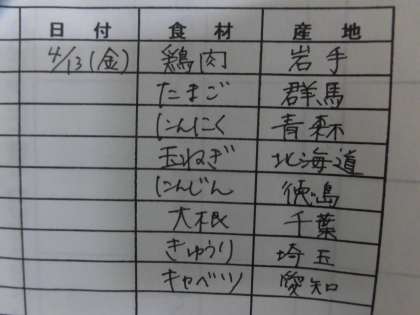 日付 食材 産地
4/13(金) 鶏肉 岩手
たまご 群馬
にんにく 青森
玉ねぎ 北海道
にんじん 徳島
大根 千葉
きゅうり 埼玉
キャベツ 愛知